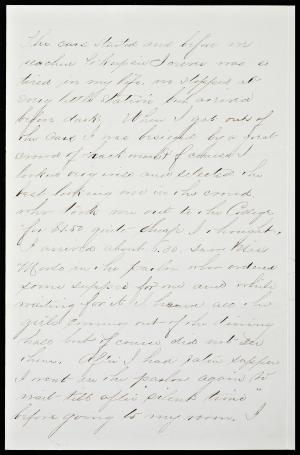 The cars started and before we
reached Po'keepsie I never was so
tired in my life. We stopped at
every little station but arrived
before dark. When I got out of
the cars I was besieged by a great
crowd of hackmen & of course I
looked very wise and selected the
best looking one in the crowd
who took me out to the College
for $1.50 quite cheap I thought.
I arrived about 7.30. Saw Miss
in the parlor who ordered
some supper for me and while
waiting for it I saw all the
girls coming out of the dining
hall but of course did not see
them. After I had eaten supper
I went in the parlor again to
wait till after "silent time"
before going to my room. I